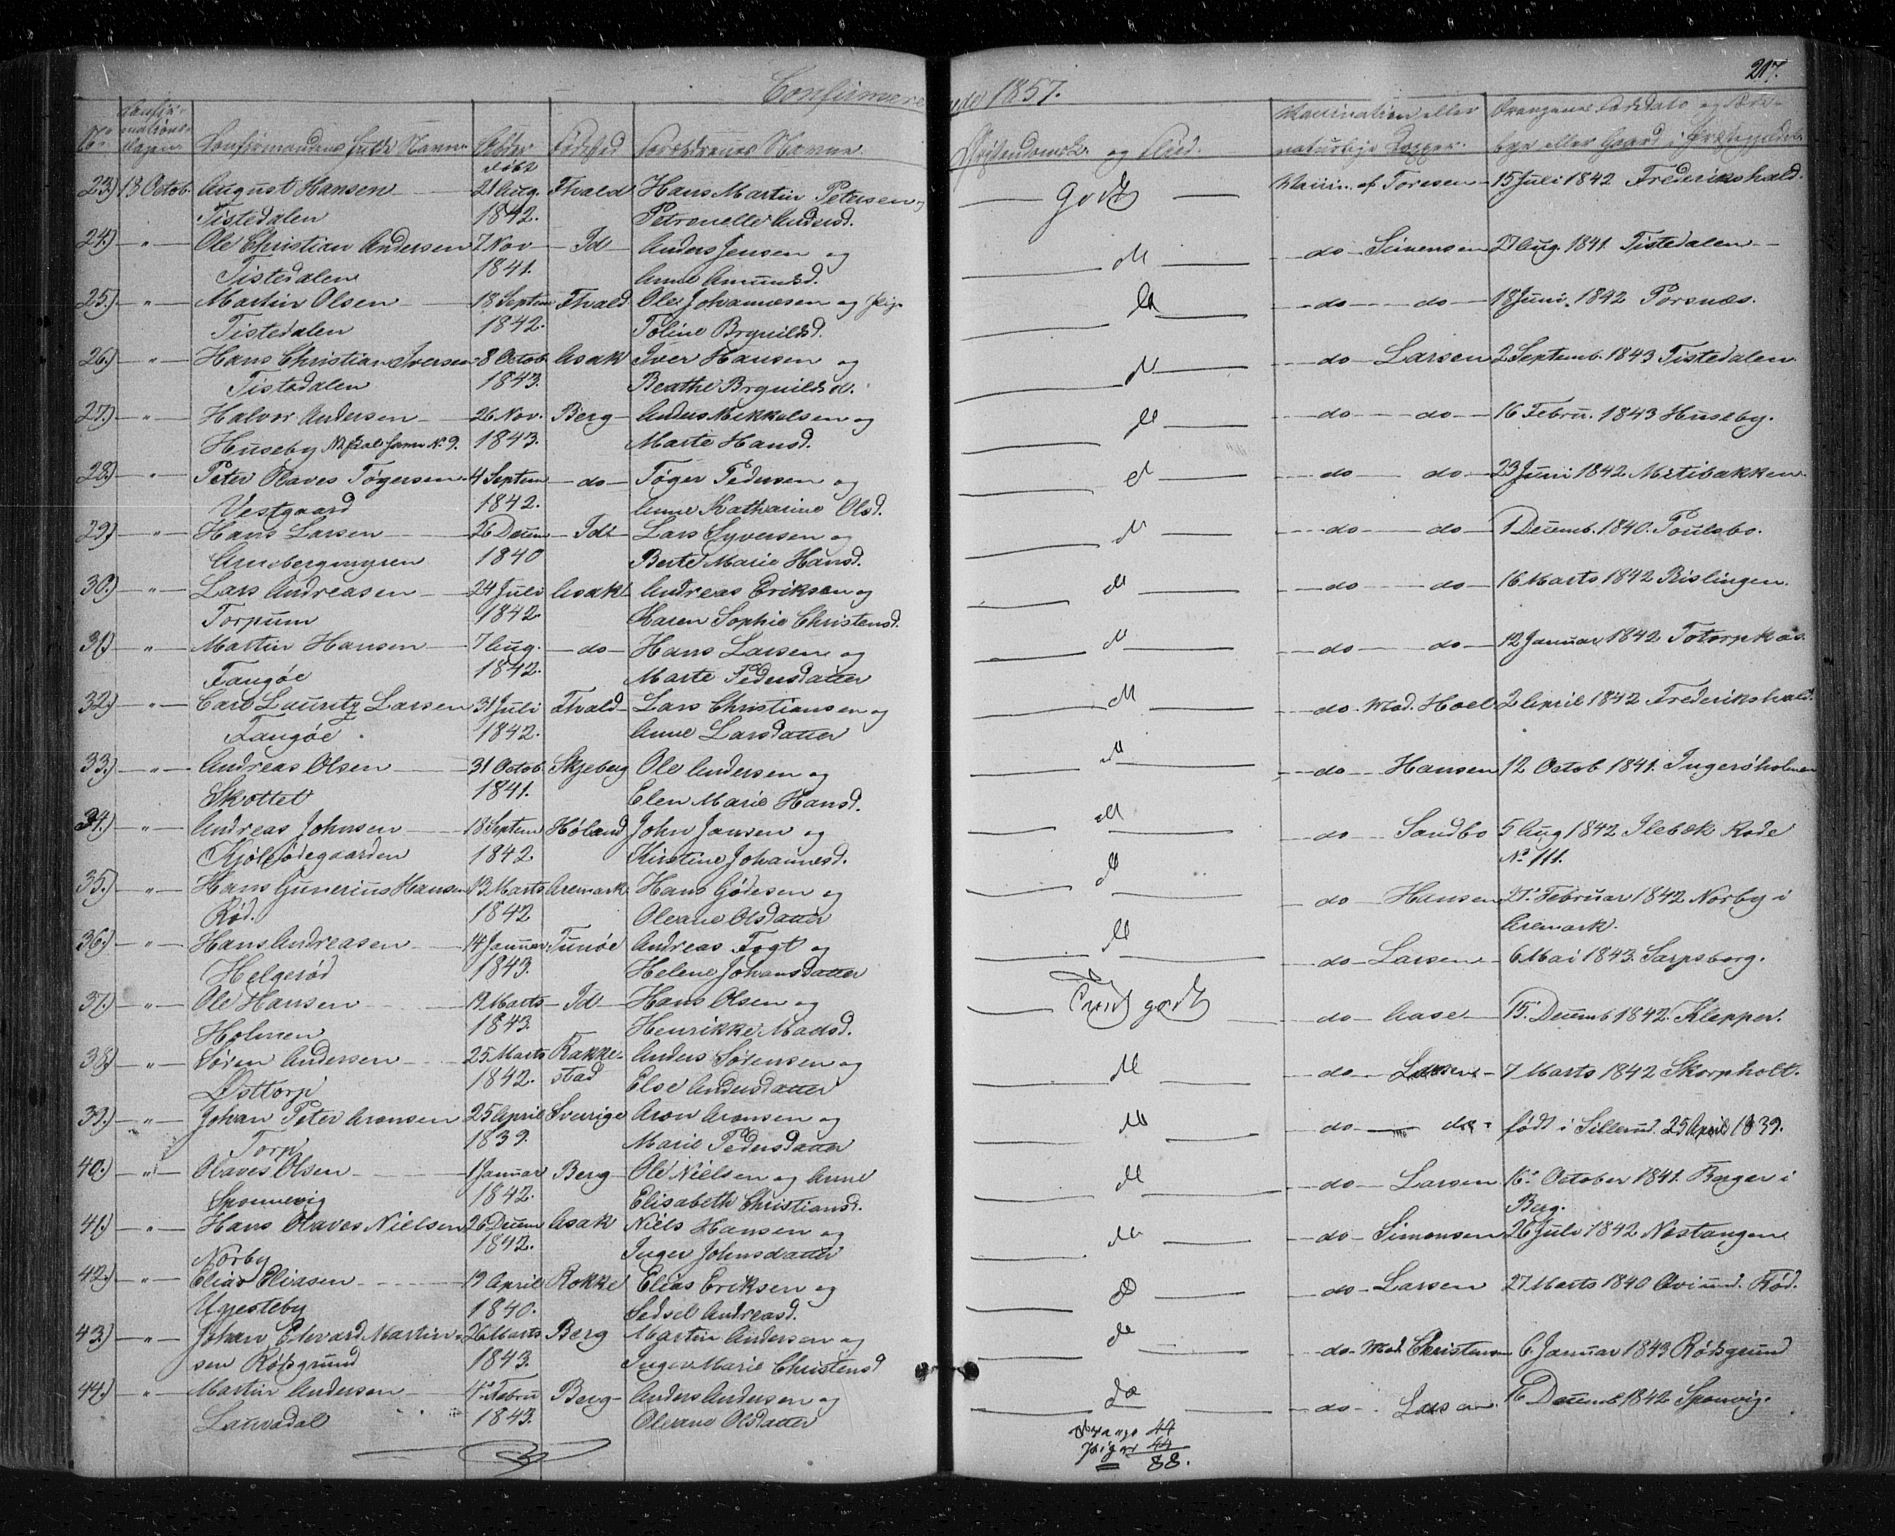 Confirmerede 1857.
217.
No Confirmationsdagen Confirmandens fulde Navn Alder Fødested Forældrenes Navne. Christendomsk. og Flid. Vaccination eller naturlige Kopper. Drengens Daabsdato og
født
23.) 18 Octob. August Hansen 21 Aug. Fhald Hans Martin Petersen og Godt Vaccin. af Toresen 15 Juli 1842 Frederikshald.
Tistedalen 1842. Petronelle Andersd.
24.) " Ole Christian Andersen 7 Nov Id Anders Jensen og do do 27 Aug. 1841. Tistedalen
Tistedalen 1841. Anne Amundsd.
25.) " Martin Olsen 18 Septem Fhald Ole Johannesen og do do do 18 Juni. 1842 Porsnæs.
Tistedalen 1842. Toline Brynildsd.
26.) " Hans Christian Iversen 8 Octob Asak Iver Hansen og do do Larsen 2 Septemb. 1843 Tistedalen
Tistedalen 1843. Beathe Brynildsd.
27.) " Halvor Andersen 26 Nov. Berg Anders Mikkelsen og do do do 16 Febru. 1843 Huseby.
Huseby No 9. 1843. Marte Hansd.
28.) " Peter Olaves Tøgersen 4 Septem do Tøger Pedersen og do do do 23 Juni 1842
Vestgaard 1842. Anne Katharine Olsd.
29.) " Hans Larsen 26 Decem Id Lars Syversen og do do do 1 Decemb. 1840. Poulsbo.
Arnebergmyren 1840 Berte Marie Hansd.
30.) " Lars Andreasen 24 Juli Asak Andreas Eriksen og do do do 16 Marts 1842 Rislingen.
Torpum 1842. Karen Sophie Christensd.
31.) " Martin Hansen 7 Aug. do Hans Larsen og do do do 12 Januar 1842
Fangøe 1842. Marte Pedersdatter
32.) " Carl Lauritz Larsen 31 Juli Fhald Lars Christiansen og do do Mad. Hoel 2 April 1842 Frederikshald.
Fangøe. 1842. Anne Larsdatter
33.) " Andreas Olsen 31 Octob Skjeberg Ole Andersen og do do Hansen 12 Octob 1841. Ingerøholmen
Skottet 1841. Elen Marie Hansd.
34.) " Andreas Johnsen 18 Septem Høland John Jansen og do do Sandbo 5 Aug 1842 Ilebæk Rode
Kjølsødegaarden 1842. Kirstine Johannesd. No 111.
35.) " Hans Gunerius Hansen 13 Marts Aremark Hans og do do Hansen 27. Februar 1842 Norby i
Rød. 1842 Oleane Olsdatter Aremark.
36.) " Hans Andreasen 14 Januar Tunøe Andreas Fogt og do do Larsen 6 Mai 1843. Sarpsborg.
Helgerød 1843. Helene Johansdatter
37.) " Ole Hansen 19 Marts Id Hans Olsen og godt do Aase 15. Decemb 1842. Klepper.
Holmen 1843. Henrikke Madsd.
38.) " Søren Andersen 25 Marts Rakkestad Anders Sørensen og do do Larsen 7 Marts 1842 Skorpholt.
Østtorp 1842. Else Andersdatter
39.) " Johan Peter Aronsen 25 April Sverrige Aron Aronsen og do do do født i Sillerud 25 April 1839.
Torp 1839. Marie Pedersdatter
40.) " Olaves Olsen 1 Januar Berg Ole Nielsen og Anne do do Larsen 16. October 1841. Berger i
Sponvig 1842. Elisabeth Christiansd. Berg.
41.) " Hans Olaves Nielsen 26 Decem Asak Niels Hansen og do do Simonsen 26 Juli 1842 Nestangen
Norby 1842. Inger Johnsdatter
42.) " Elias Eliasen 19 April Rokke Elias Eriksen og do do Larsen 27 Marts 1840 Rød.
1840. Sedsel Andreasd.
43.) " Johan Edvard Martin- 26 Marts Berg Martin Andersen og do do Mad. Christensen 6 Januar 1843 Rødsgrund
sen Rødsgrund 1843. Inger Marie Christensd
44.) " Martin Andersen 4 Febru Berg Anders Andersen og do do Larsen. 16 Decemb 1842 Sponvig.
Lauvadal 1843. Oleane Olsdatter
Drenge 44
Piger 44
88.